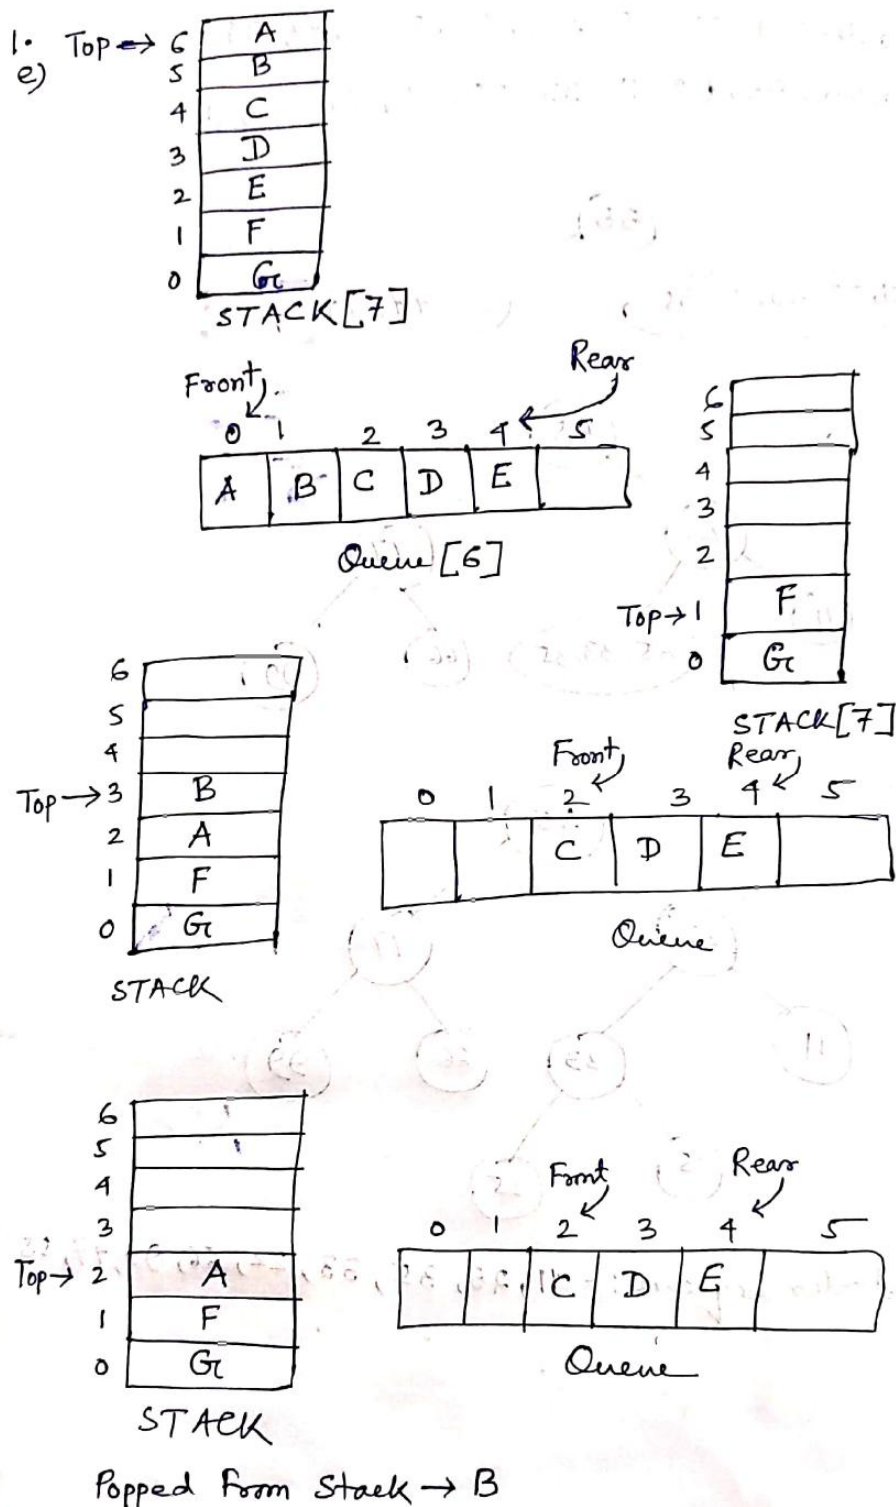 1. Top → 6 A
e) 5 B
4 C
3 D
2 E
1 F
0 G
STACK[7]
Front Rear
0 1 2 3 4 5
A B C D E
Queue [6]
6
5
4
3
2
Top → 1 F
0 G
STACK[7]
6
5
4
Top → 3 B
2 A
1 F
0 G
STACK
Front Rear
0 1 2 3 4 5
C D E
Queue
6
5
4
3
Top → 2 A
1 F
0 G
STACK
Front Rear
0 1 2 3 4 5
C D E
Queue
Popped From Stack → B